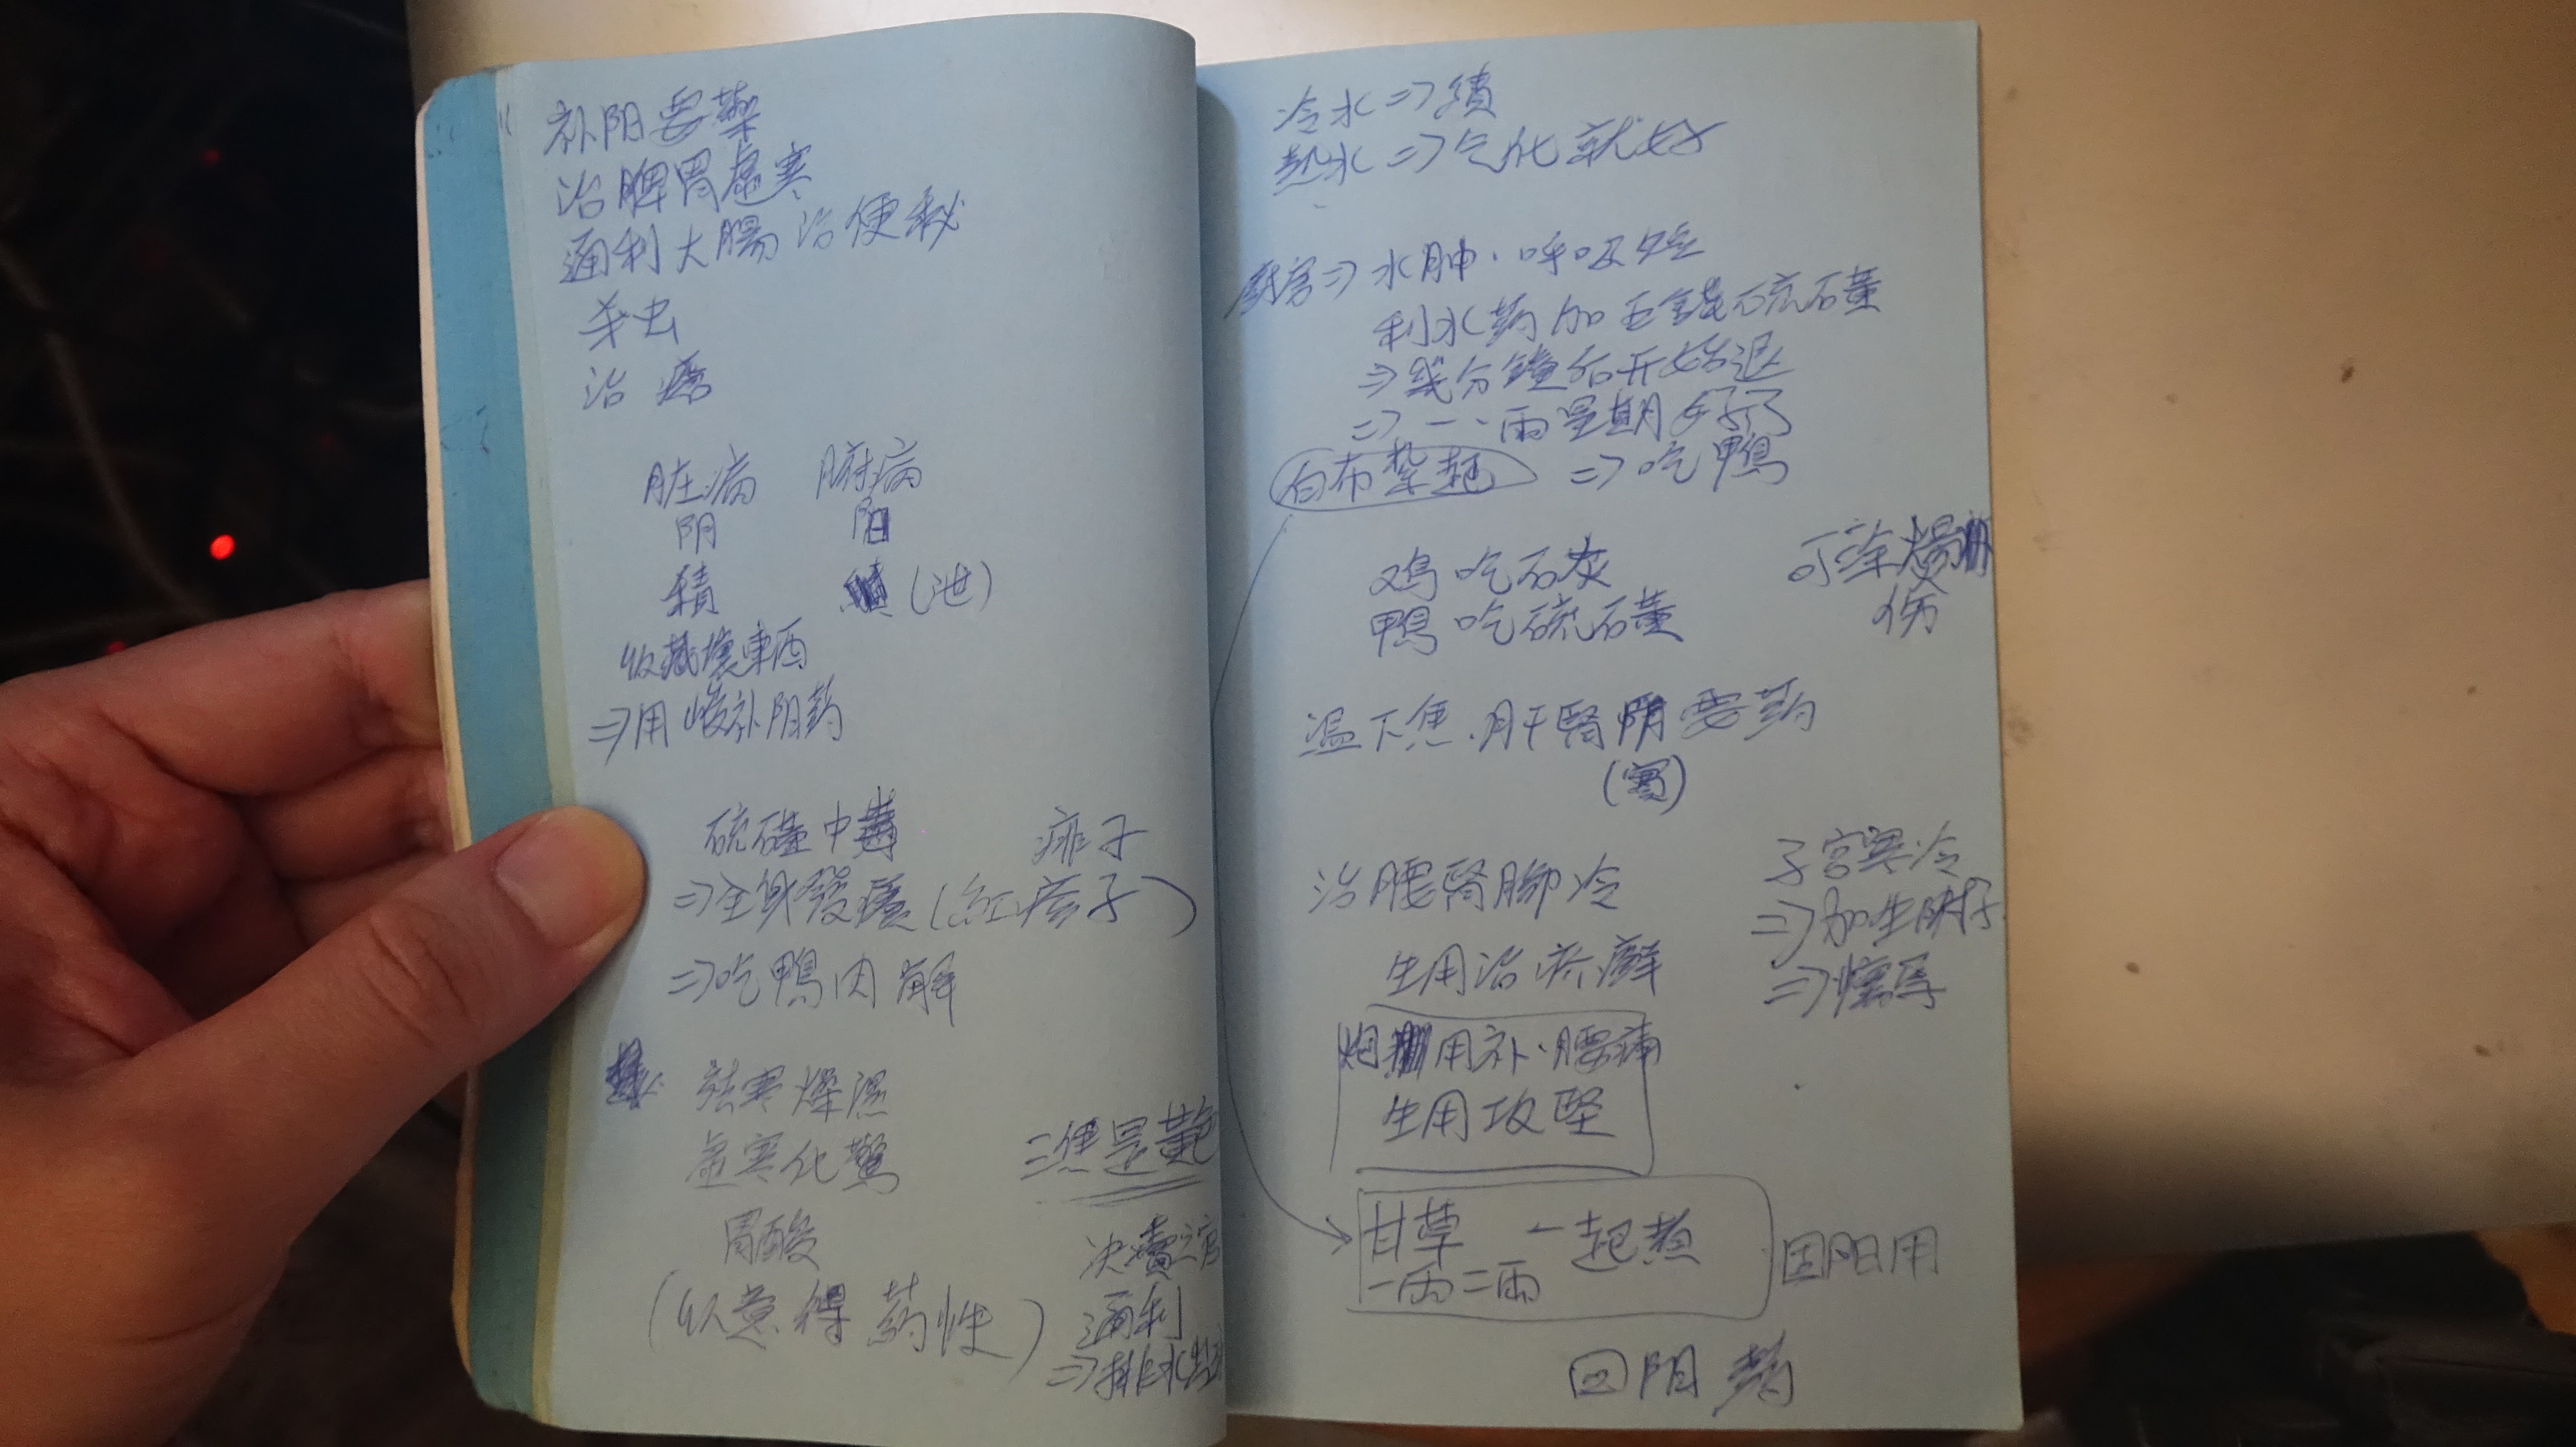 补阳要藥
治脾胃虚寒
通利大腸 治便秘
杀虫
治
脏病 腑病
阴 阳
積 (泄)
收藏壞東西
⇒用峻补阳药
硫磺中毒 痱子
⇒全身發 (紅疹子)
⇒吃鴨肉解
祛寒燥濕
虚寒化 三焦是
胃酸 决瀆之官
(以意得药性) 通利
⇒排水
冷水⇒積
热水⇒气化就好
⇒水肿·呼吸短
利水药加五錢硫磺
⇒幾分鐘后开始退
⇒一、兩星期好了
白布紮起 ⇒吃鴨
鸡吃石灰 可塗燙
鴨吃硫磺 伤
温下焦·肝腎要药
(寒)
治腰腎腳冷 子宫寒冷
⇒加生附子
生用治疥癬 ⇒懷孕
炮用补·腰痛
生用攻堅
甘草 一起煮
一兩二兩 回阳用
回阳药